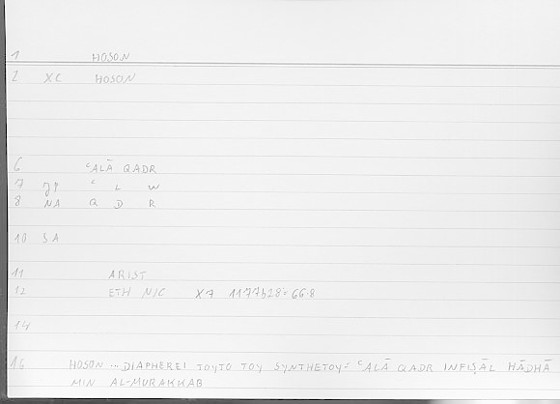 1 HOSON
2 XC HOSON
6 ʿALĀ QADR
7 JP ʿ L W
8 NA Q D R
10 SA
11 ARIST
12 ETH NIC X7 1177b28=66.8
14
16 HOSON ... DIAPHEREI TOYTO TOY SYNTHETOY = ʿALĀ QADR INFIṢĀL HĀDHĀ
MIN AL-MURAKKAB